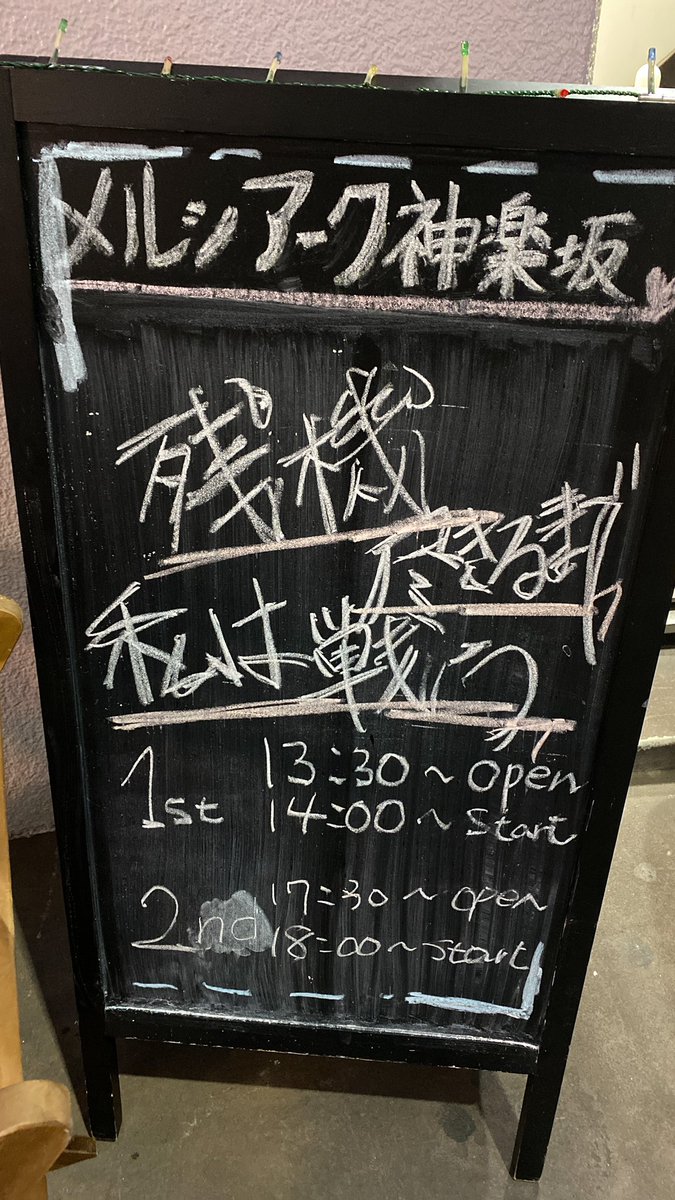 メルシアーク神楽坂
残機
尽きるまで
私は戦う
1st 13:30~open
14:00~start
2nd 17:30~open
18:00~start